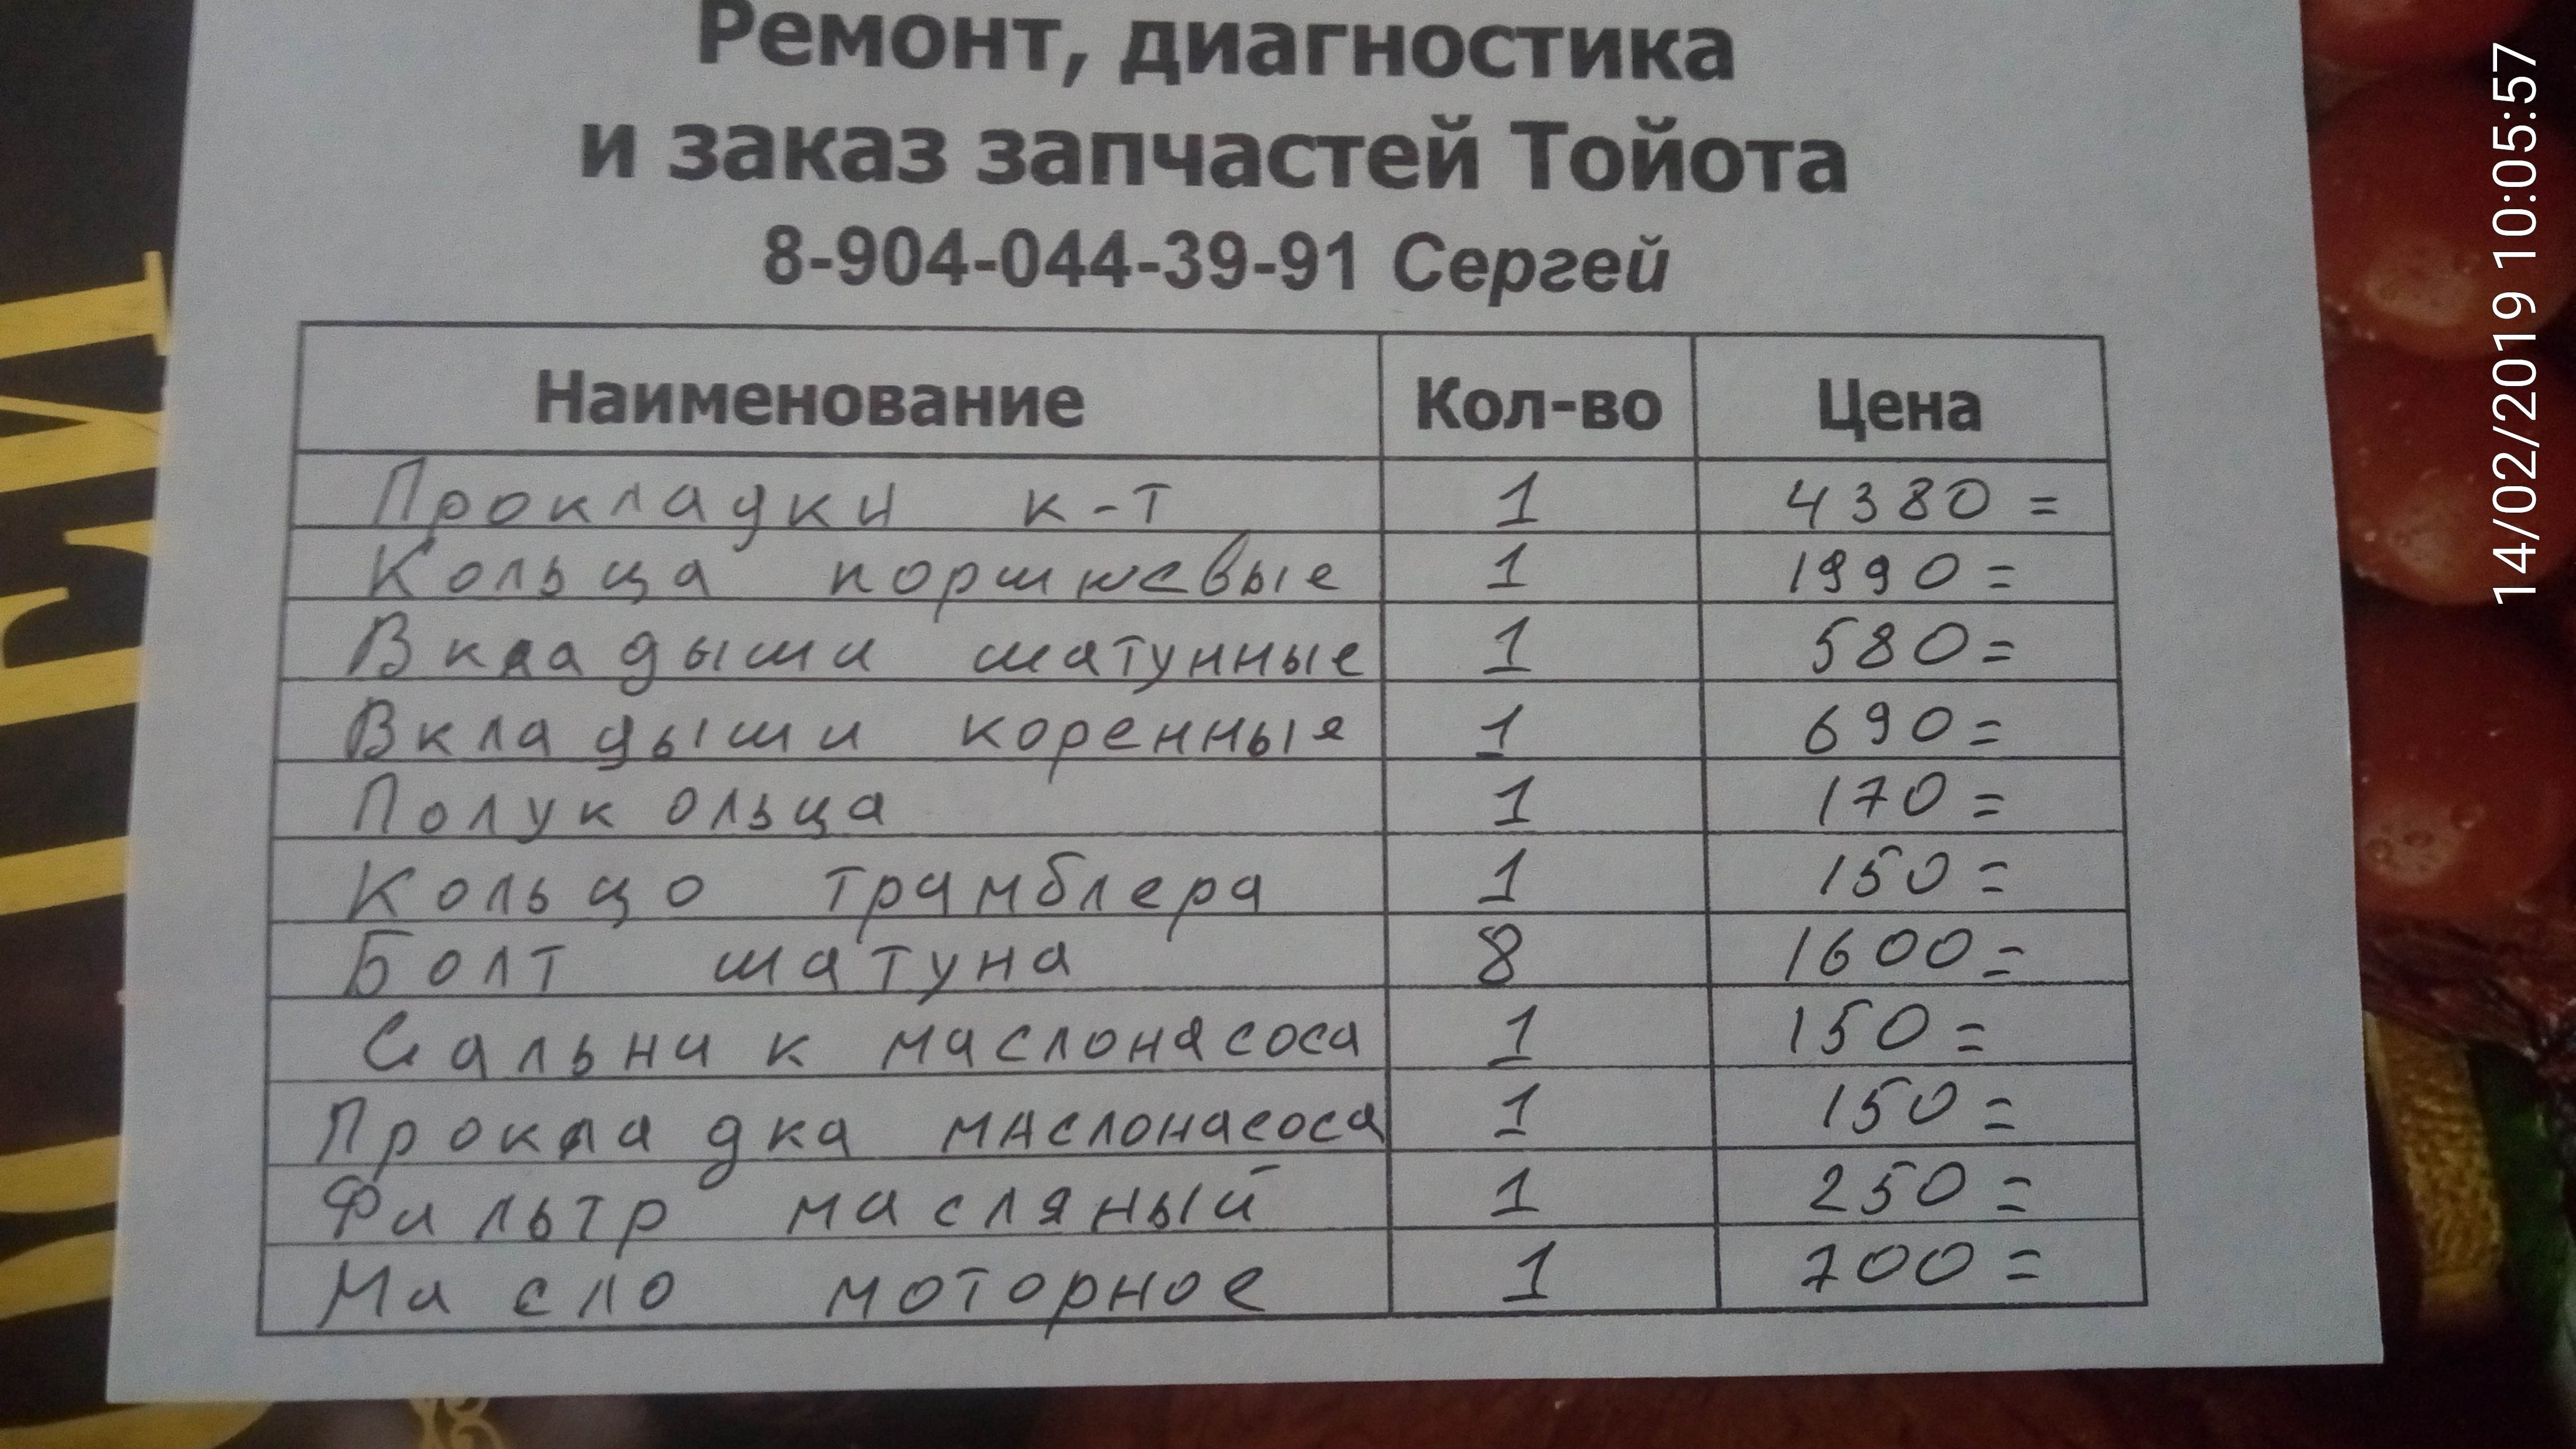 Ремонт, диагностика
и заказ запчастей Тойота
8-904-044-39-91 Сергей
Наименование Кол-во Цена
Прокладки к-т 1 4380=
Кольца поршневые 1 1990=
Вкладыши шатунные 1 580=
Вкладыши коренные 1 690=
Полукольца 1 170=
Кольцо трамблера 1 150=
Болт шатуна 8 1600=
Сальник маслонасоса 1 150=
Прокладка маслонасоса 1 150=
Фильтр масляный 1 250=
Масло моторное 1 700=
14/02/2019 10:05:57